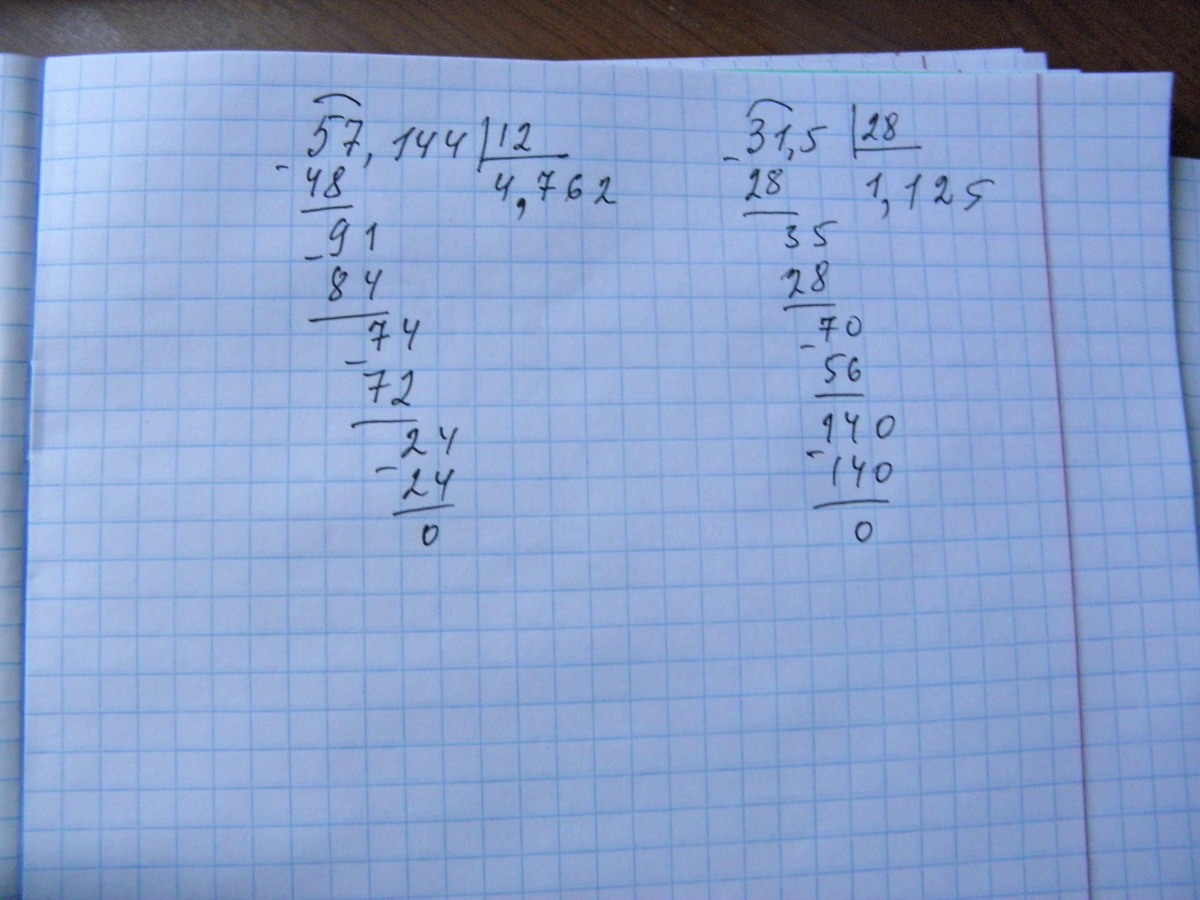 57,144 12
- 48 4,762
- 91
84
- 74
72
- 24
24
0
- 31,5 28
28 1,125
35
28
- 70
56
- 140
140
0